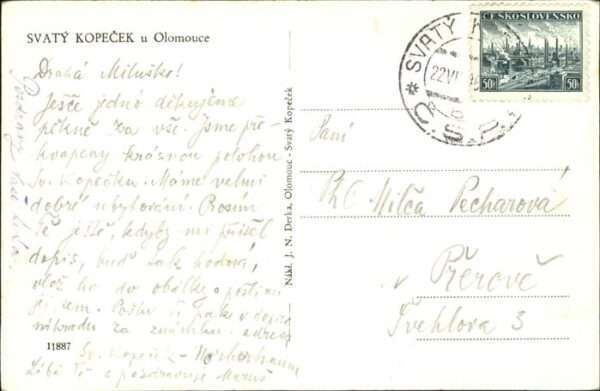 SVATÝ KOPEČEK u Olomouce
Drahá Miluško!
Ješče jednô děkujeme
pěkně za vše. Jsme pře-
kvapeny krásnou polohou
Sv. Kopečku. Máme velmi
dobré ubytování. Prosím
Tě ještě, kdyby mi přišel
dopis, buď tak hodná,
vlož ho do obálky a pošli mi
ji sem. Pošlu Ti pak v dopise
náhradu za známku. adresa
Sv. Kopeček -
Líbá Tě a pozdravuje Maruš
11887
Nákl. J. N. Derka, Olomouc - Svatý Kopeček
ČESKOSLOVENSKO
50h 50h
SVATÝ K
22.VI
Č.S.P.
Paní
Milča Pecharová
v Přerově
Švehlova 3